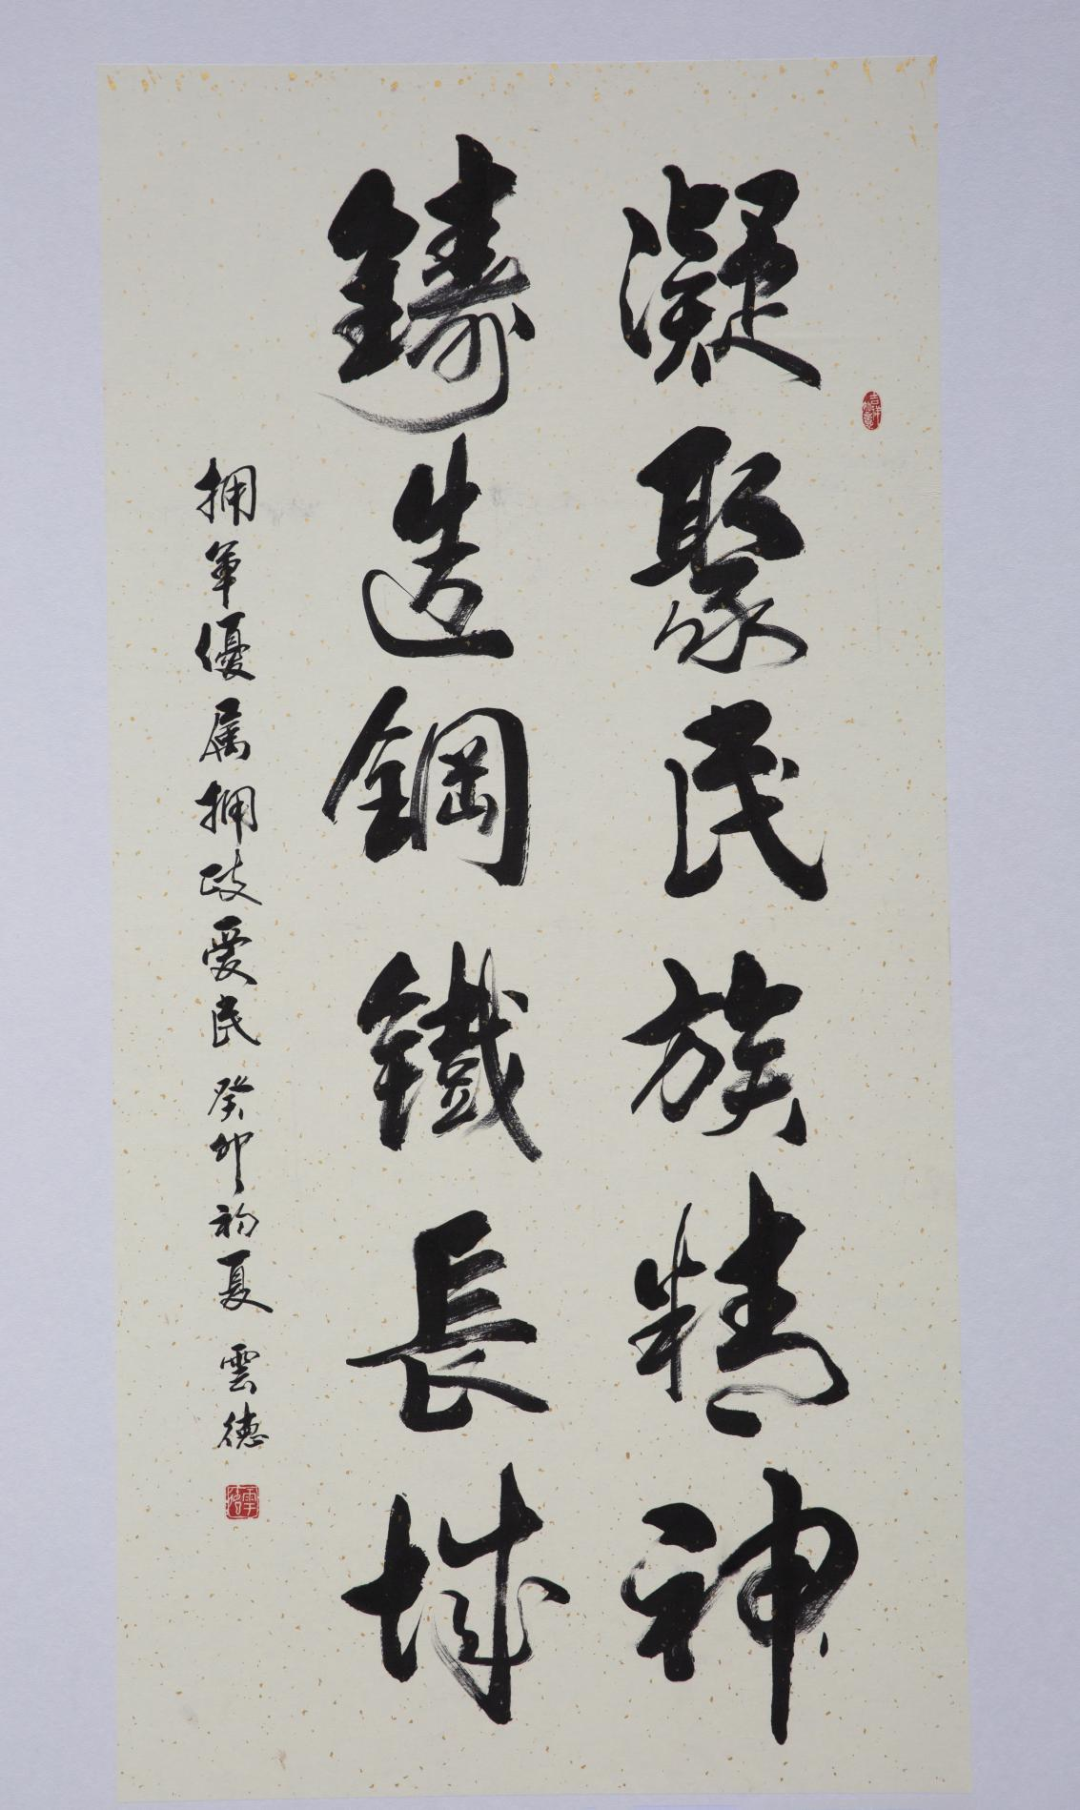 凝聚民族精神
鑄造鋼鐵長城
拥军優属拥政爱民 癸卯初夏 雲德